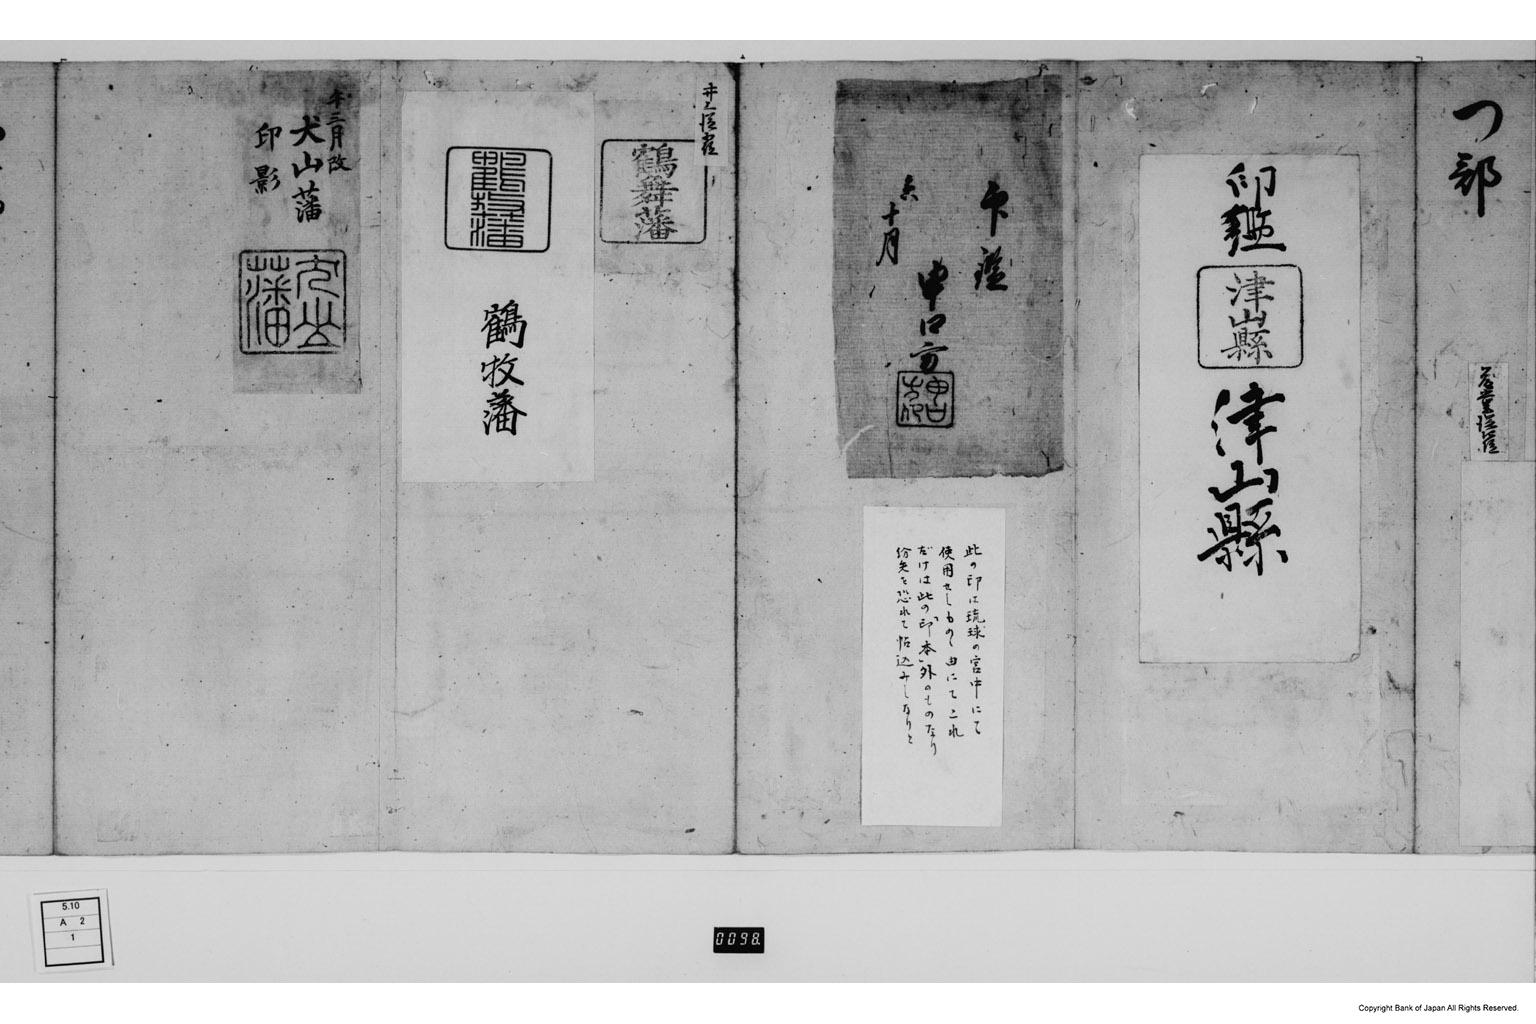 つ部
印鑑
津山縣
津山縣
印鑑
申口方
申口方印
十月
此の印は琉球の宮中にて
使用せしものゝ由にてこれ
だけは此の印本外のものなり
紛失を恐れて帖込みしなりと
鶴舞藩
鶴牧藩
鶴牧藩
年三月改
犬山藩
印影
犬山藩
5.10
A 2
1
0098.
Copyright Bank of Japan All Rights Reserved.